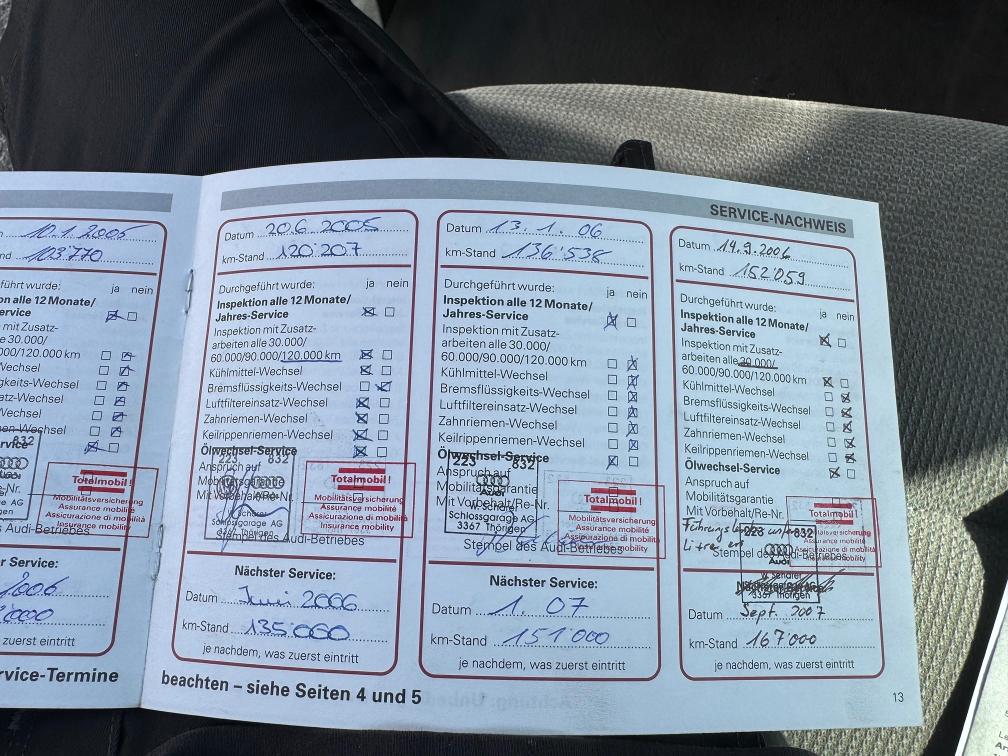 SERVICE-NACHWEIS
10.1.2005
nd 103'770
geführt wurde: ja nein
on alle 12 Monate/
ervice
mit Zusatz-
le 30.000/
000/120.000 km
Wechsel
gkeits-Wechsel
atz-Wechsel
Wechsel
men-Wechsel
rvice
832
Totalmobil!
Mobilitätsversicherung
Assurance mobilité
Assicurazione di mobilità
Insurance mobility
s Audi-Betriebes
er Service:
2006
000
zuerst eintritt
rvice-Termine
Datum 20.6 2005
km-Stand 120'207
Durchgeführt wurde: ja nein
Inspektion alle 12 Monate/
Jahres-Service
Inspektion mit Zusatz-
arbeiten alle 30.000/
60.000/90.000/120.000 km
Kühlmittel-Wechsel
Bremsflüssigkeits-Wechsel
Luftfiltereinsatz-Wechsel
Zahnriemen-Wechsel
Keilrippenriemen-Wechsel
Ölwechsel-Service
223 832
Anspruch auf
Mobilitätsgarantie
Mit Vorbehalt/Re-Nr.
Schlossgarage AG
3367 Thörigen
Totalmobil!
Mobilitätsversicherung
Assurance mobilité
Assicurazione di mobilità
Insurance mobility
Stempel des Audi-Betriebes
Nächster Service:
Datum Juni 2006
km-Stand 135'000
je nachdem, was zuerst eintritt
beachten – siehe Seiten 4 und 5
Datum 13.1.06
km-Stand 136'538
Durchgeführt wurde: ja nein
Inspektion alle 12 Monate/
Jahres-Service
Inspektion mit Zusatz-
arbeiten alle 30.000/
60.000/90.000/120.000 km
Kühlmittel-Wechsel
Bremsflüssigkeits-Wechsel
Luftfiltereinsatz-Wechsel
Zahnriemen-Wechsel
Keilrippenriemen-Wechsel
Ölwechsel-Service
223 832
Anspruch auf
Mobilitätsgarantie
Audi
Mit Vorbehalt/Re-Nr.
W. Schärer
Schlossgarage AG
3367 Thörigen
Totalmobil!
Mobilitätsversicherung
Assurance mobilité
Assicurazione di mobilità
Insurance mobility
Stempel des Audi-Betriebes
Nächster Service:
Datum 1. 07
km-Stand 151'000
je nachdem, was zuerst eintritt
Datum 14.9.2006
km-Stand 152'059
Durchgeführt wurde: ja nein
Inspektion alle 12 Monate/
Jahres-Service
Inspektion mit Zusatz-
arbeiten alle 30.000/
60.000/90.000/120.000 km
Kühlmittel-Wechsel
Bremsflüssigkeits-Wechsel
Luftfiltereinsatz-Wechsel
Zahnriemen-Wechsel
Keilrippenriemen-Wechsel
Ölwechsel-Service
Anspruch auf
Mobilitätsgarantie
Mit Vorbehalt/Re-Nr.
Totalmobil!
Mobilitätsversicherung
Assurance mobilité
Assicurazione di mobilità
Insurance mobility
223 832
Stempel des Audi-Betriebes
Audi
W. Schärer
3367 Thörigen
Datum Sept. 2007
km-Stand 167'000
je nachdem, was zuerst eintritt
13